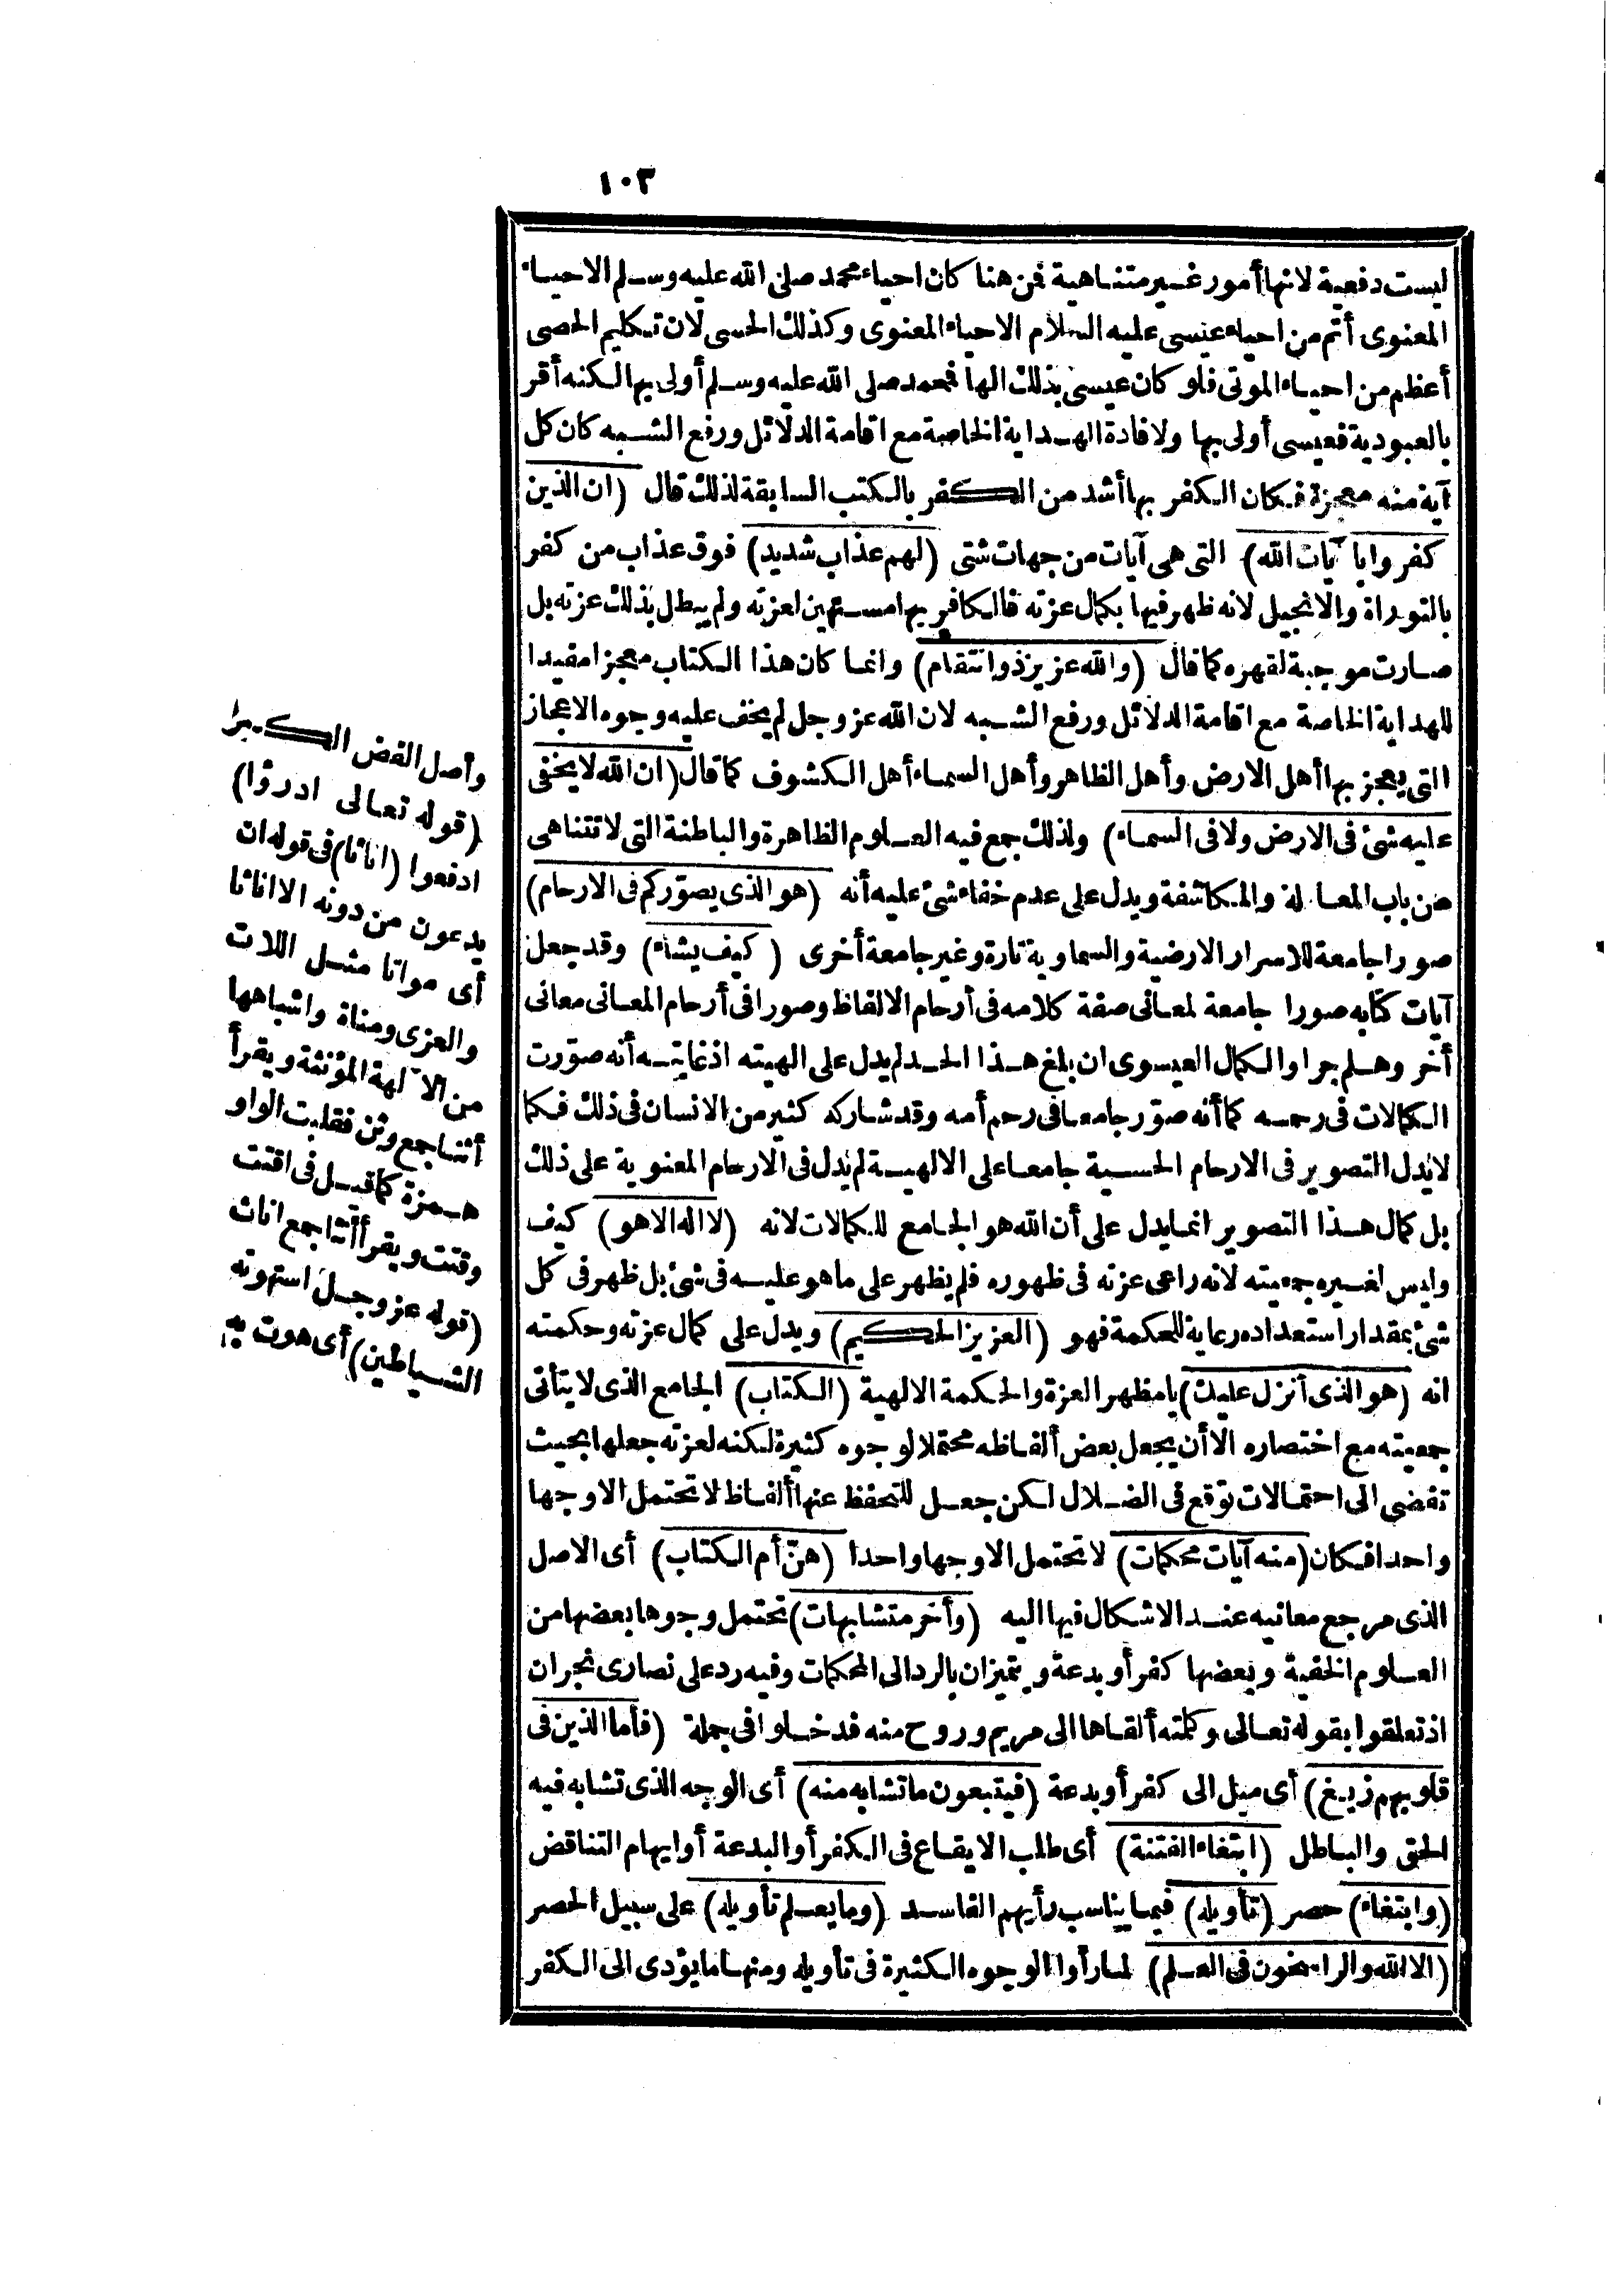 ١٠٣
ليست دفعية لانها أمور غير متناهية فمن هنا كان احياء محمد صلى الله عليه وسلم الاحياء
المعنوى أتم من احياء عيسى عليه السلام الاحياء المعنوى وكذلك الحسى لان تكليم الحصى
أعظم من احياء الموتى فلو كان عيسى بذلك الها فمحمد صلى الله عليه وسلم أولى بها لكنه أقر
بالعبودية فعيسى أولى بها ولافادة الهداية الخاصة مع اقامة الدلائل ورفع الشبه كان كل
آية منه معجزة فكان الكفر بها أشد من الكفر بالكتب السابقة لذلك قال (ان الذين
كفروا با آيات الله) التى هى آيات من جهات شتى (لهم عذاب شديد) فوق عذاب من كفر
بالتوراة والانجيل لانه ظهر فيها بكمال عزته فالكافر بها مستهين لعزته ولم يبطل بذلك عزته بل
صارت موجبة لقهره كما قال (والله عزيز ذو انتقام) وانما كان هذا الكتاب معجزا مفيدا
للهداية الخاصة مع اقامة الدلائل ورفع الشبه لان الله عز وجل لم يخف عليه وجوه الاعجاز
التى يعجز بها أهل الارض وأهل الظاهر وأهل السماء أهل الكشوف كما قال (ان الله لا يخفى
عليه شئ فى الارض ولا فى السماء) ولذلك جمع فيه العلوم الظاهرة والباطنة التى لا تتناهى
من باب المعاملة والمكاشفة ويدل على عدم خفاء شئ عليه أنه (هو الذى يصوّركم فى الارحام)
صورا جامعة للاسرار الارضية والسماوية تارة وغير جامعة أخرى (كيف يشاء) وقد جعل
آيات كتابه صورا جامعة لمعانى صفة كلامه فى أرحام الالفاظ وصورا فى أرحام المعانى معانى
أخر وهلم جرا والكمال العيسوى ان بلغ هذا الحد لم يدل على الهيته اذ غايته أنه صوّرت
الكمالات فى رحمه كما أنه صوّر جامعا فى رحم أمه وقد شاركه كثير من الانسان فى ذلك فكما
لا يدل التصوير فى الارحام الحسية جامعا على الالهية لم يدل فى الارحام المعنوية على ذلك
بل كمال هذا التصوير انما يدل على أن الله هو الجامع للكمالات لانه (لا اله الا هو) كيف
وليس لغيره جمعيته لانه راعى عزته فى ظهوره فلم يظهر على ما هو عليه فى شئ بل ظهر فى كل
شئ بمقدار استعداده رعاية للحكمة فهو (العزيز الحكيم) ويدل على كمال عزته وحكمته
انه (هو الذى أنزل عليك) يا مظهر العزة والحكمة الالهية (الكتاب) الجامع الذى لا يتأتى
جمعيته مع اختصاره الا أن يجعل بعض ألفاظه محتملا لوجوه كثيرة لكنه لعزته جعلها بحيث
تفضى الى احتمالات توقع فى الضلال لكن جعل للتحفظ عنها ألفاظ لا تحتمل الا وجها
واحدا فكان (منه آيات محكمات) لا تحتمل الا وجها واحدا (هنّ أم الكتاب) أى الاصل
الذى مرجع معانيه عند الاشكال فيها اليه (وأخر متشابهات) تحتمل وجوها بعضها من
العلوم الخفية وبعضها كفر أو بدعة ويتميزان بالرد الى المحكمات وفيه رد على نصارى نجران
اذ تعلقوا بقوله تعالى وكلمته ألقاها الى مريم وروح منه فدخلوا فى جملة (فأما الذين فى
قلوبهم زيغ) أى ميل الى كفر أو بدعة (فيتبعون ما تشابه منه) أى الوجه الذى تشابه فيه
الحق والباطل (ابتغاء الفتنة) أى طلب الايقاع فى الكفر أو البدعة أو ايهام التناقض
(وابتغاء) حصر (تأويله) فيما يناسب رأيهم الفاسد (وما يعلم تأويله) على سبيل الحصر
(الا الله والراسخون فى العلم) لما رأوا الوجوه الكثيرة فى تأويله ومنها ما يؤدى الى الكفر
وأصل الفض الكسر
(قوله تعالى ادرؤا)
ادفعوا (اناثا) فى قوله ان
يدعون من دونه الا اناثا
أى مواتا مثل اللات
والعزى ومناة واشباهها
من الآلهة المؤنثة ويقرأ
أثنا جمع وثن فقلبت الواو
همزة كما قيل فى اقتت
وقتت ويقرأ أنثا جمع اناث
(قوله عز وجل استهوته
الشياطين) أى هوت به